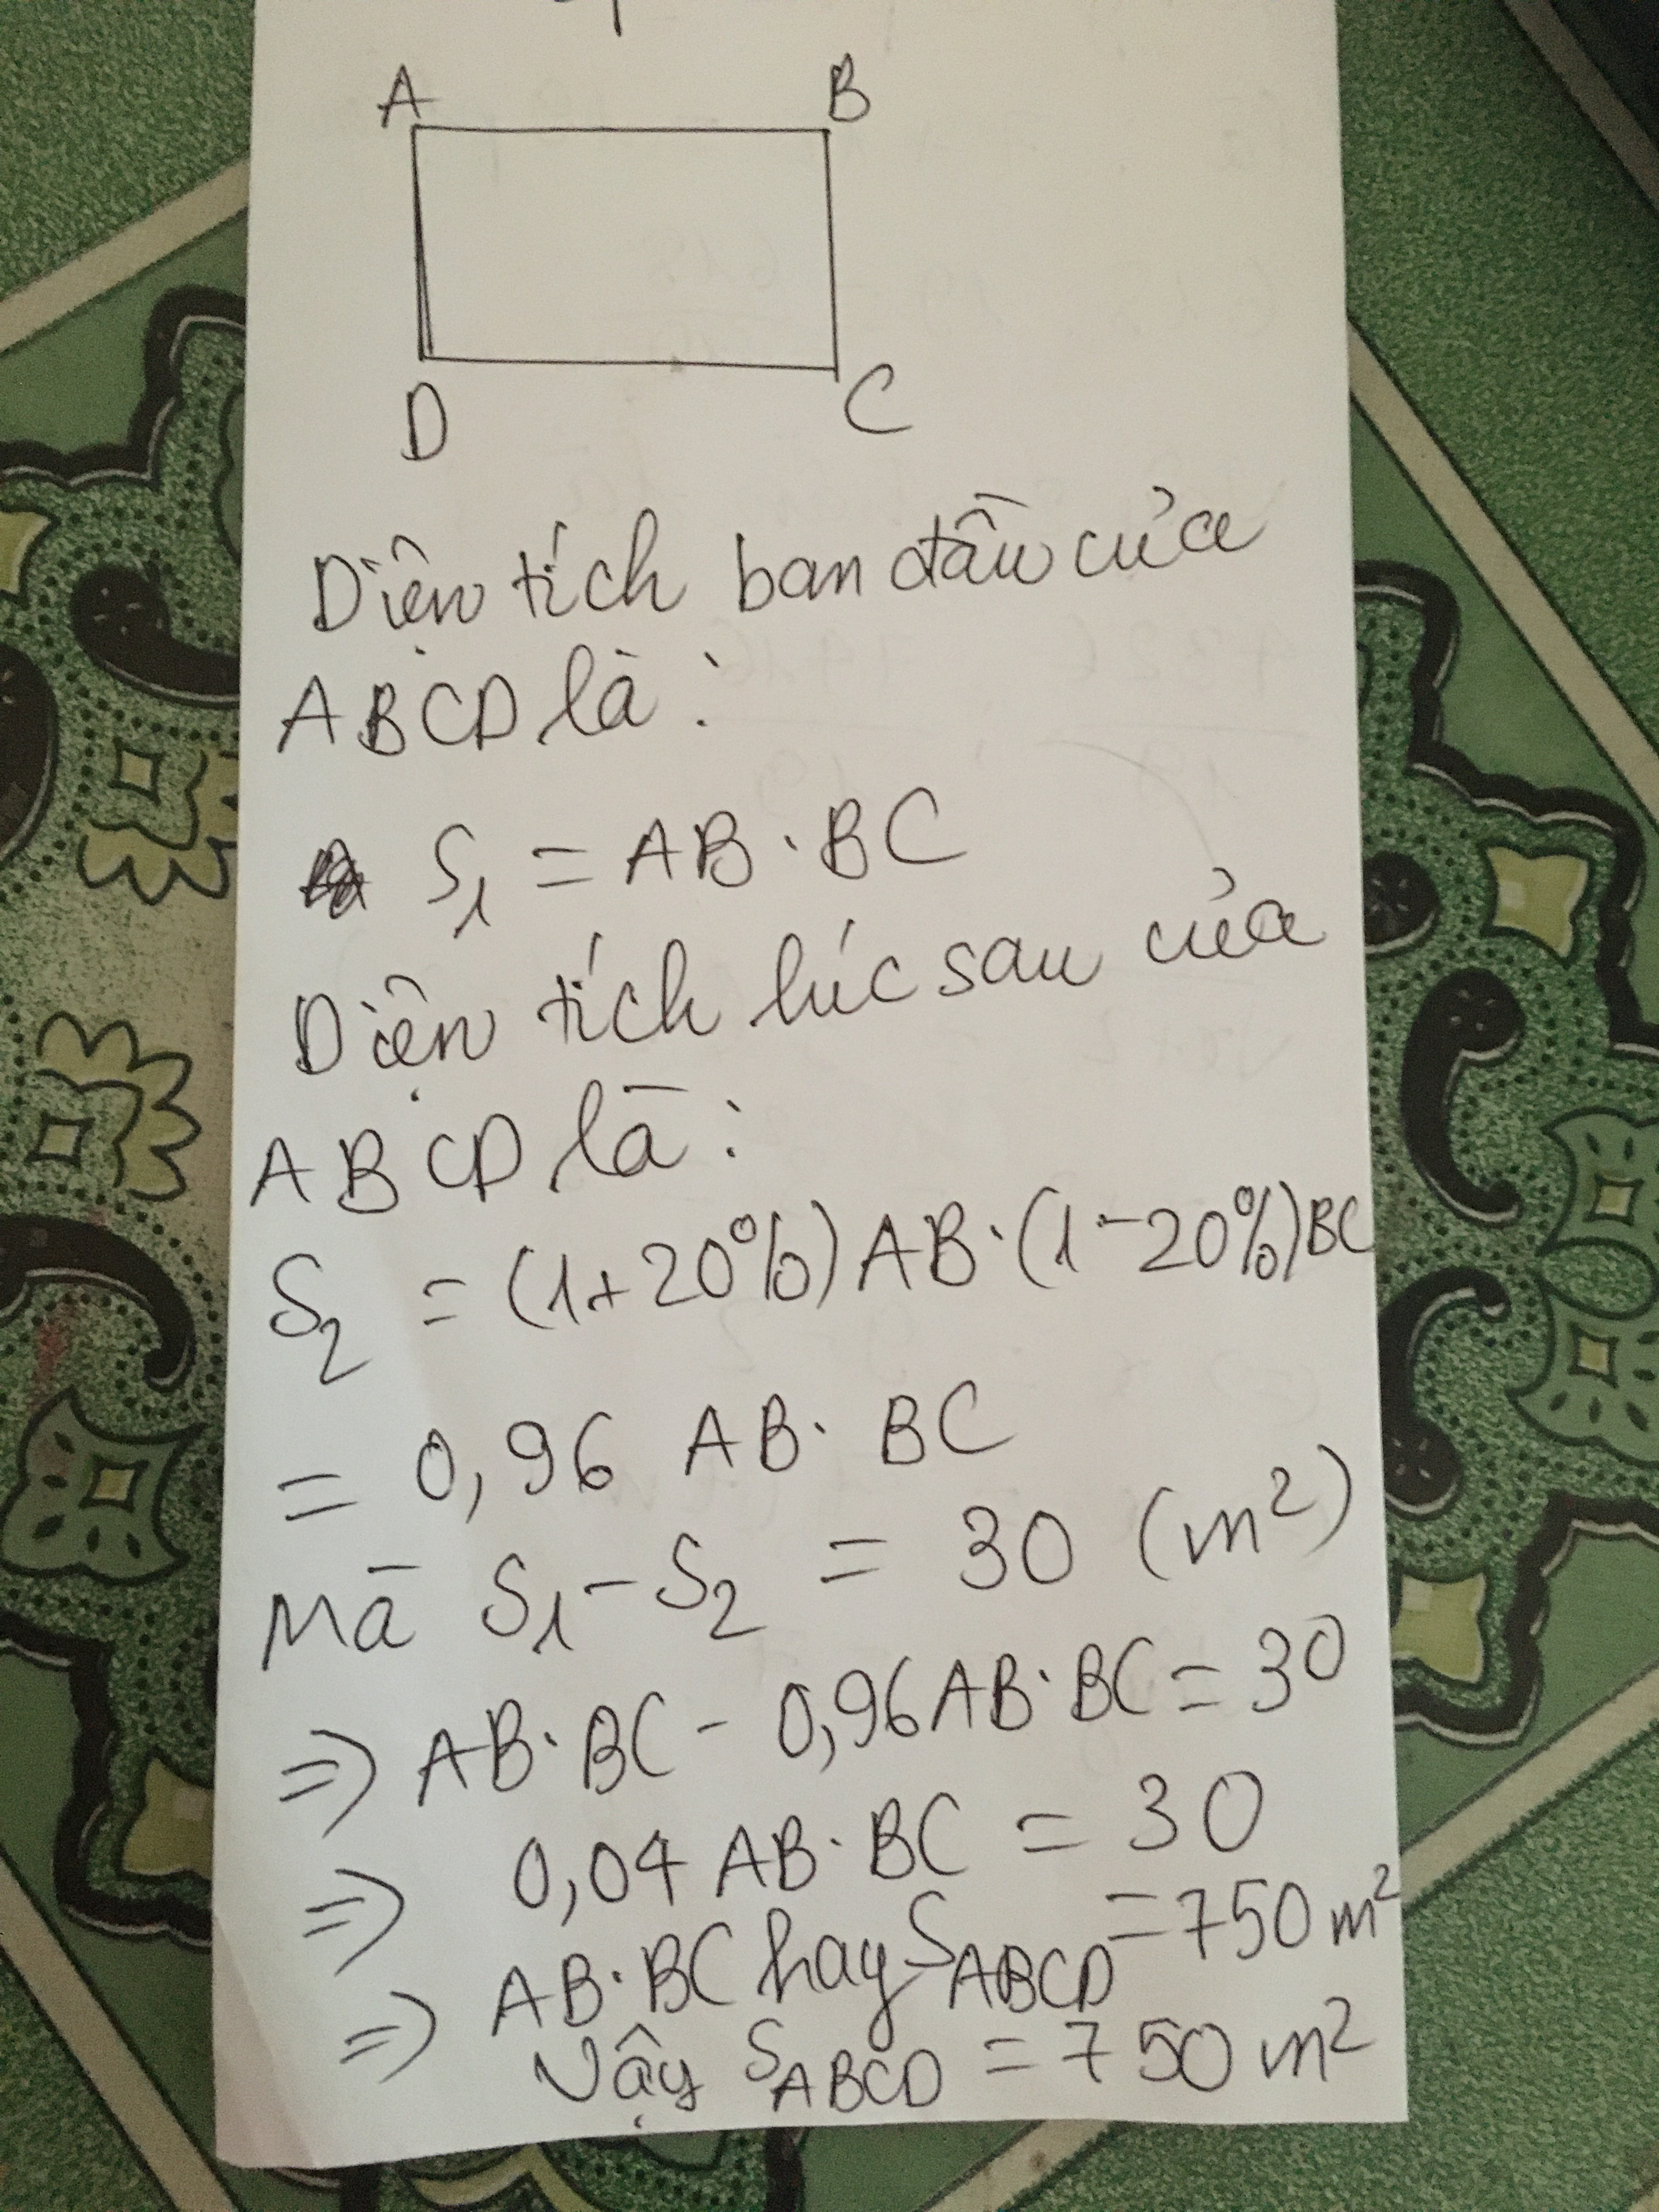 A B
D C
Diện tích ban đầu của
ABCD là:
S₁ = AB . BC
Diện tích lúc sau của
ABCD là:
S₂ = (1+20%)AB.(1-20%)BC
= 0,96 AB. BC
Mà S₁ - S₂ = 30 (m²)
=> AB.BC - 0,96AB.BC = 30
=> 0,04 AB.BC = 30
=> AB.BC hay S_ABCD = 750 m²
Vậy S_ABCD = 750 m²